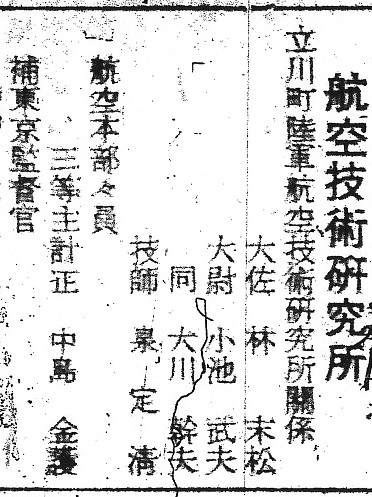 航空技術研究所
立川町陸軍航空技術研究所關係
大佐 林 末松
大尉 小池 武夫
同 大川 幹夫
技師 泉 定清
航空本部々員
三等主計正 中島 金護
補東京監督官